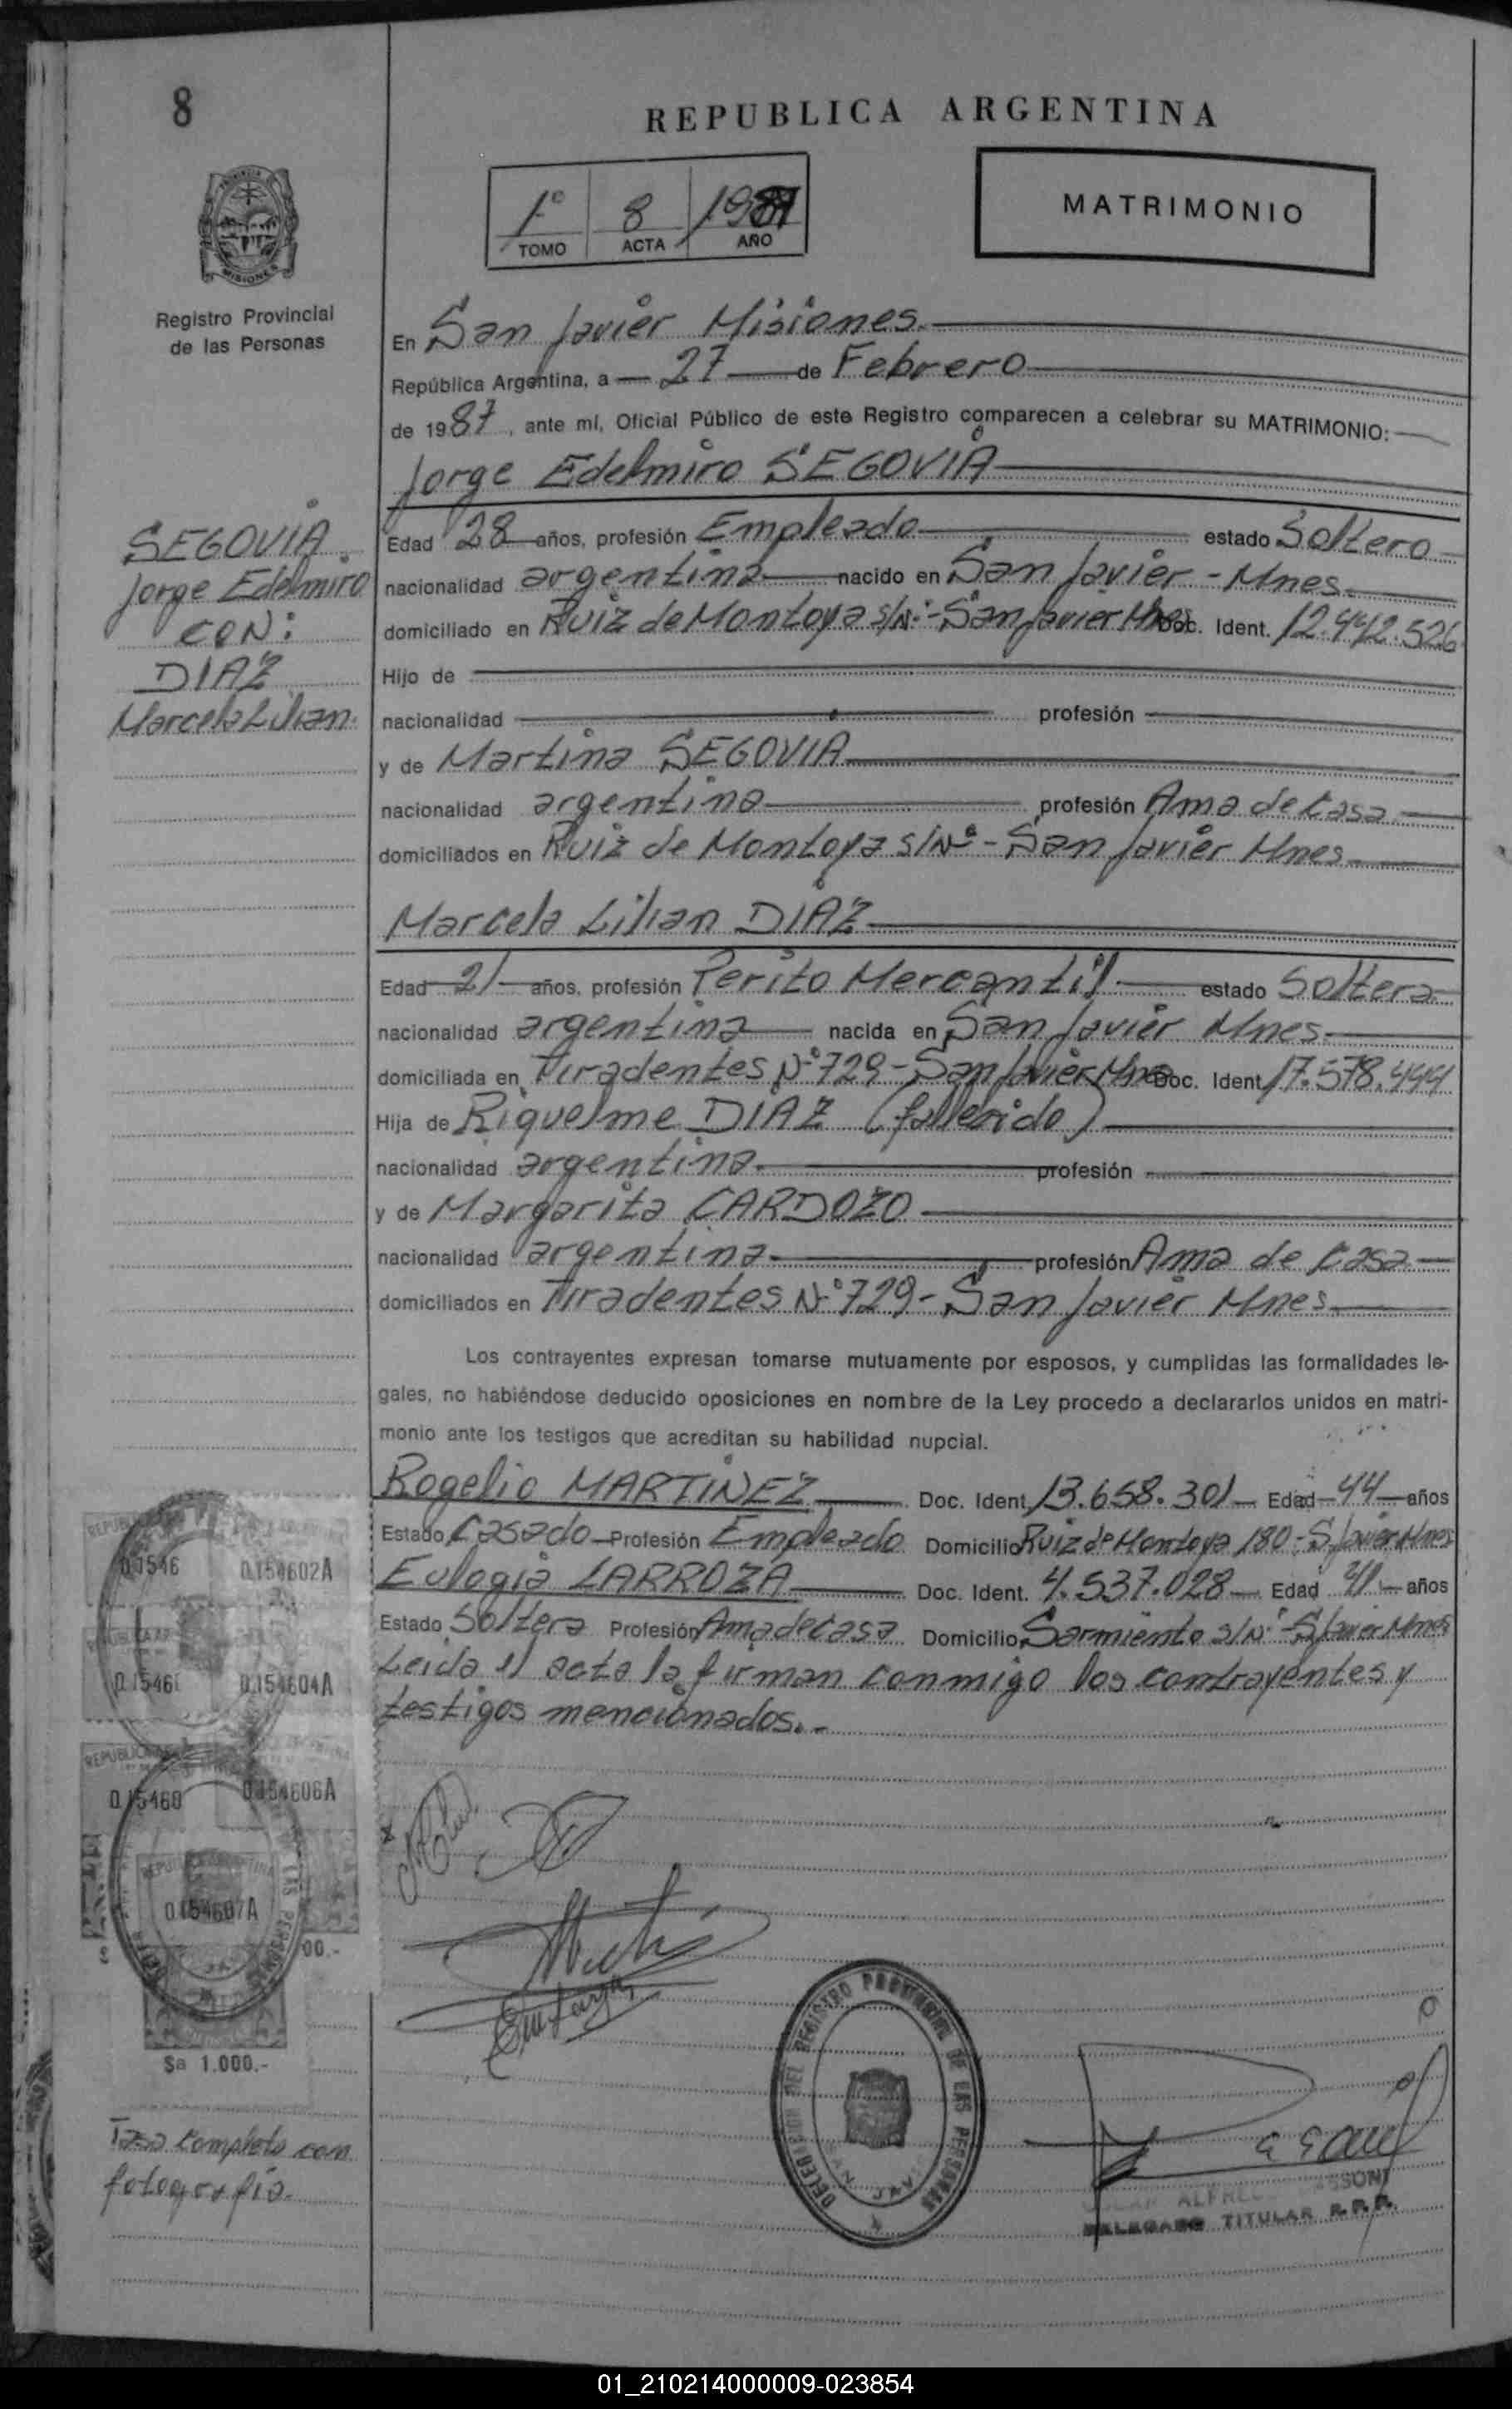 8
REPUBLICA ARGENTINA
1º 8 1987
TOMO ACTA AÑO
MATRIMONIO
PROVINCIA DE MISIONES
Registro Provincial
de las Personas
En San Javier Misiones.
República Argentina, a 27 de Febrero
de 1987, ante mí, Oficial Público de este Registro comparecen a celebrar su MATRIMONIO:
Jorge Edelmiro SEGOVIA
SEGOVIA
Jorge Edelmiro
CON:
DIAZ
Marcela Lilian.
Edad 28 años, profesión Empleado estado Soltero
nacionalidad argentina nacido en San Javier - Mnes.
domiciliado en Ruiz de Montoya s/Nº - San Javier Mnes. Doc. Ident. 12.442.526
Hijo de
nacionalidad profesión
y de Martina SEGOVIA
nacionalidad argentina profesión Ama de Casa
domiciliados en Ruiz de Montoya s/Nº - San Javier Mnes
Marcela Lilian DIAZ
Edad 21 años, profesión Perito Mercantil estado Soltera
nacionalidad argentina nacida en San Javier Mnes.
domiciliada en Tiradentes Nº 729 - San Javier Mnes Doc. Ident. 17.578.444
Hija de Riquelme DIAZ (fallecido)
nacionalidad argentina. profesión
y de Margarita CARDOZO
nacionalidad argentina. profesión Ama de Casa
domiciliados en Tiradentes Nº 729 - San Javier Mnes
Los contrayentes expresan tomarse mutuamente por esposos, y cumplidas las formalidades le-
gales, no habiéndose deducido oposiciones en nombre de la Ley procedo a declararlos unidos en matri-
monio ante los testigos que acreditan su habilidad nupcial.
Rogelio MARTINEZ Doc. Ident. 13.658.301 Edad 44 años
Estado Casado Profesión Empleado Domicilio Ruiz de Montoya 180 - S/Javier Mnes
Eulogia LARROZA Doc. Ident. 4.537.028 Edad 41 años
Estado Soltera Profesión Ama de Casa Domicilio Sarmiento s/Nº - S/Javier Mnes
Leida el acta la firman conmigo los contrayentes y
testigos mencionados.-
0.1546
0.154602A
0.1546
0.154604A
0.15460
0.154606A
0.154607A
$a 1.000.-
Taza completo con
fotografia.
DELEGACION DEL REGISTRO PROVINCIAL DE LAS PERSONAS
SAN JAVIER
ALFREDO
DELEGADO TITULAR R.P.P.
01_210214000009-023854